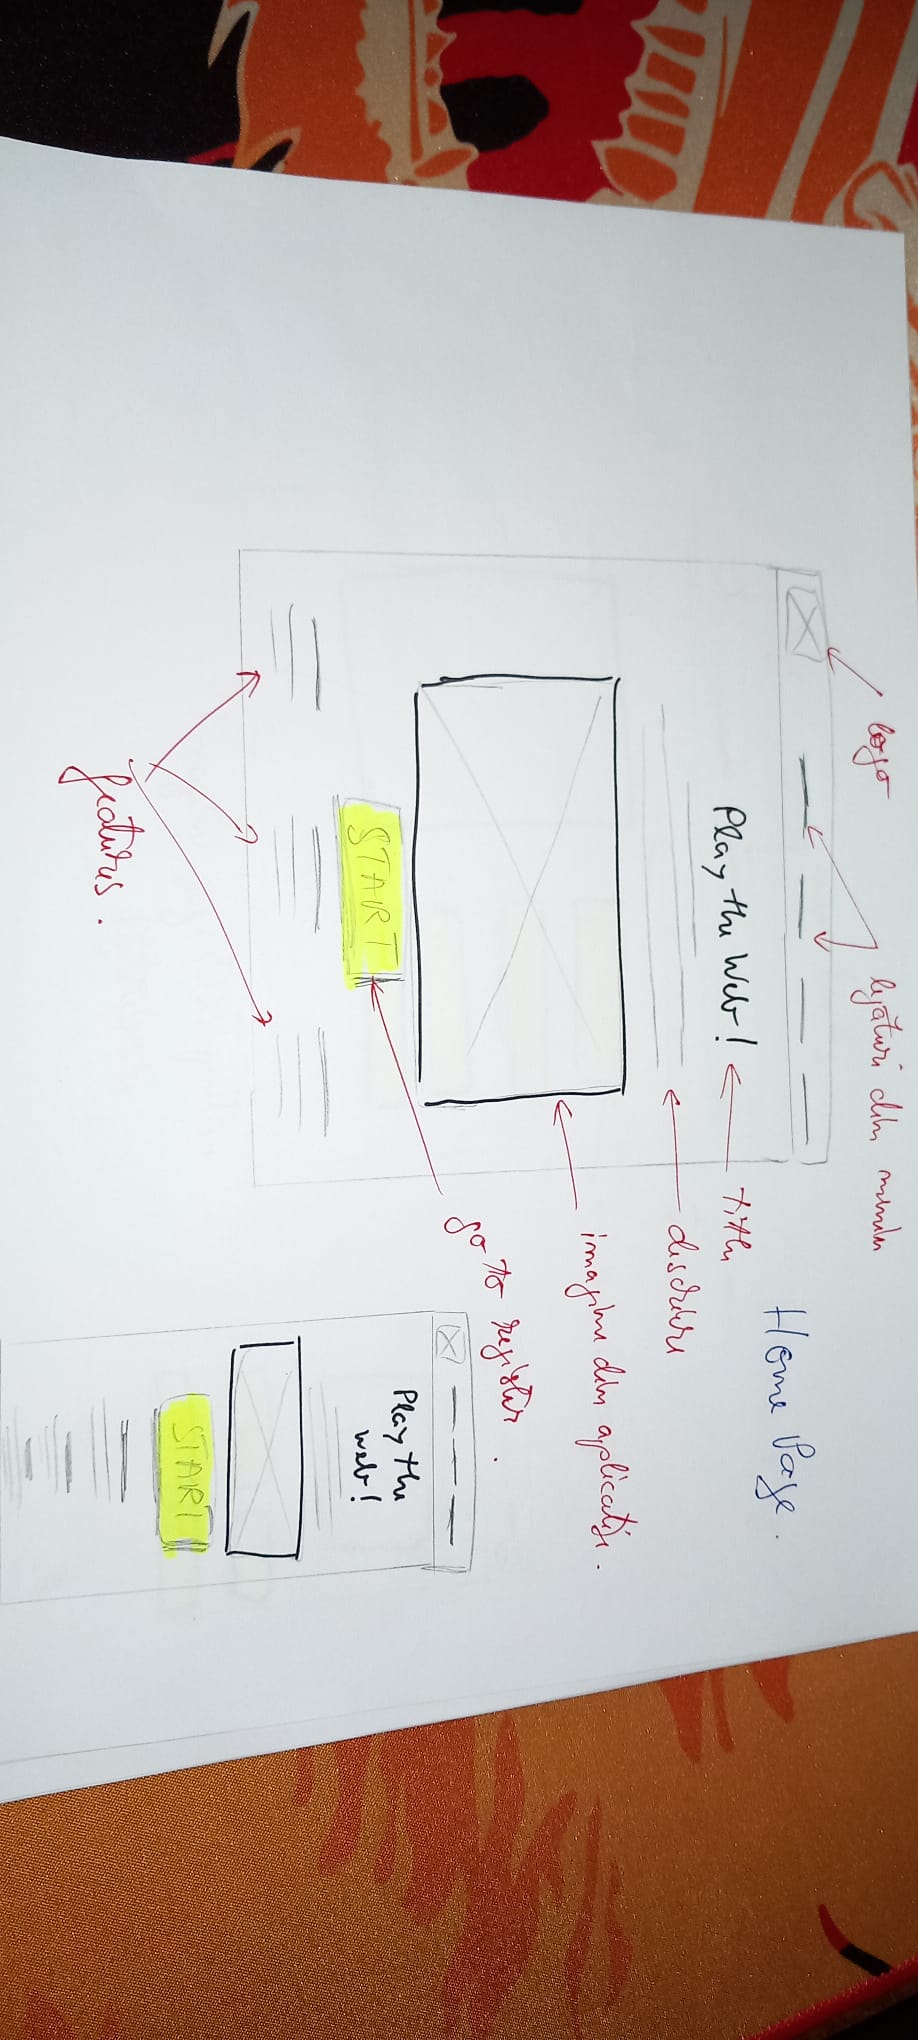 Home Page.
logo
legături din meniu
Play the Web!
titlu
descriere
imagine din aplicație.
START
go to register.
features.
Play the
web!
START